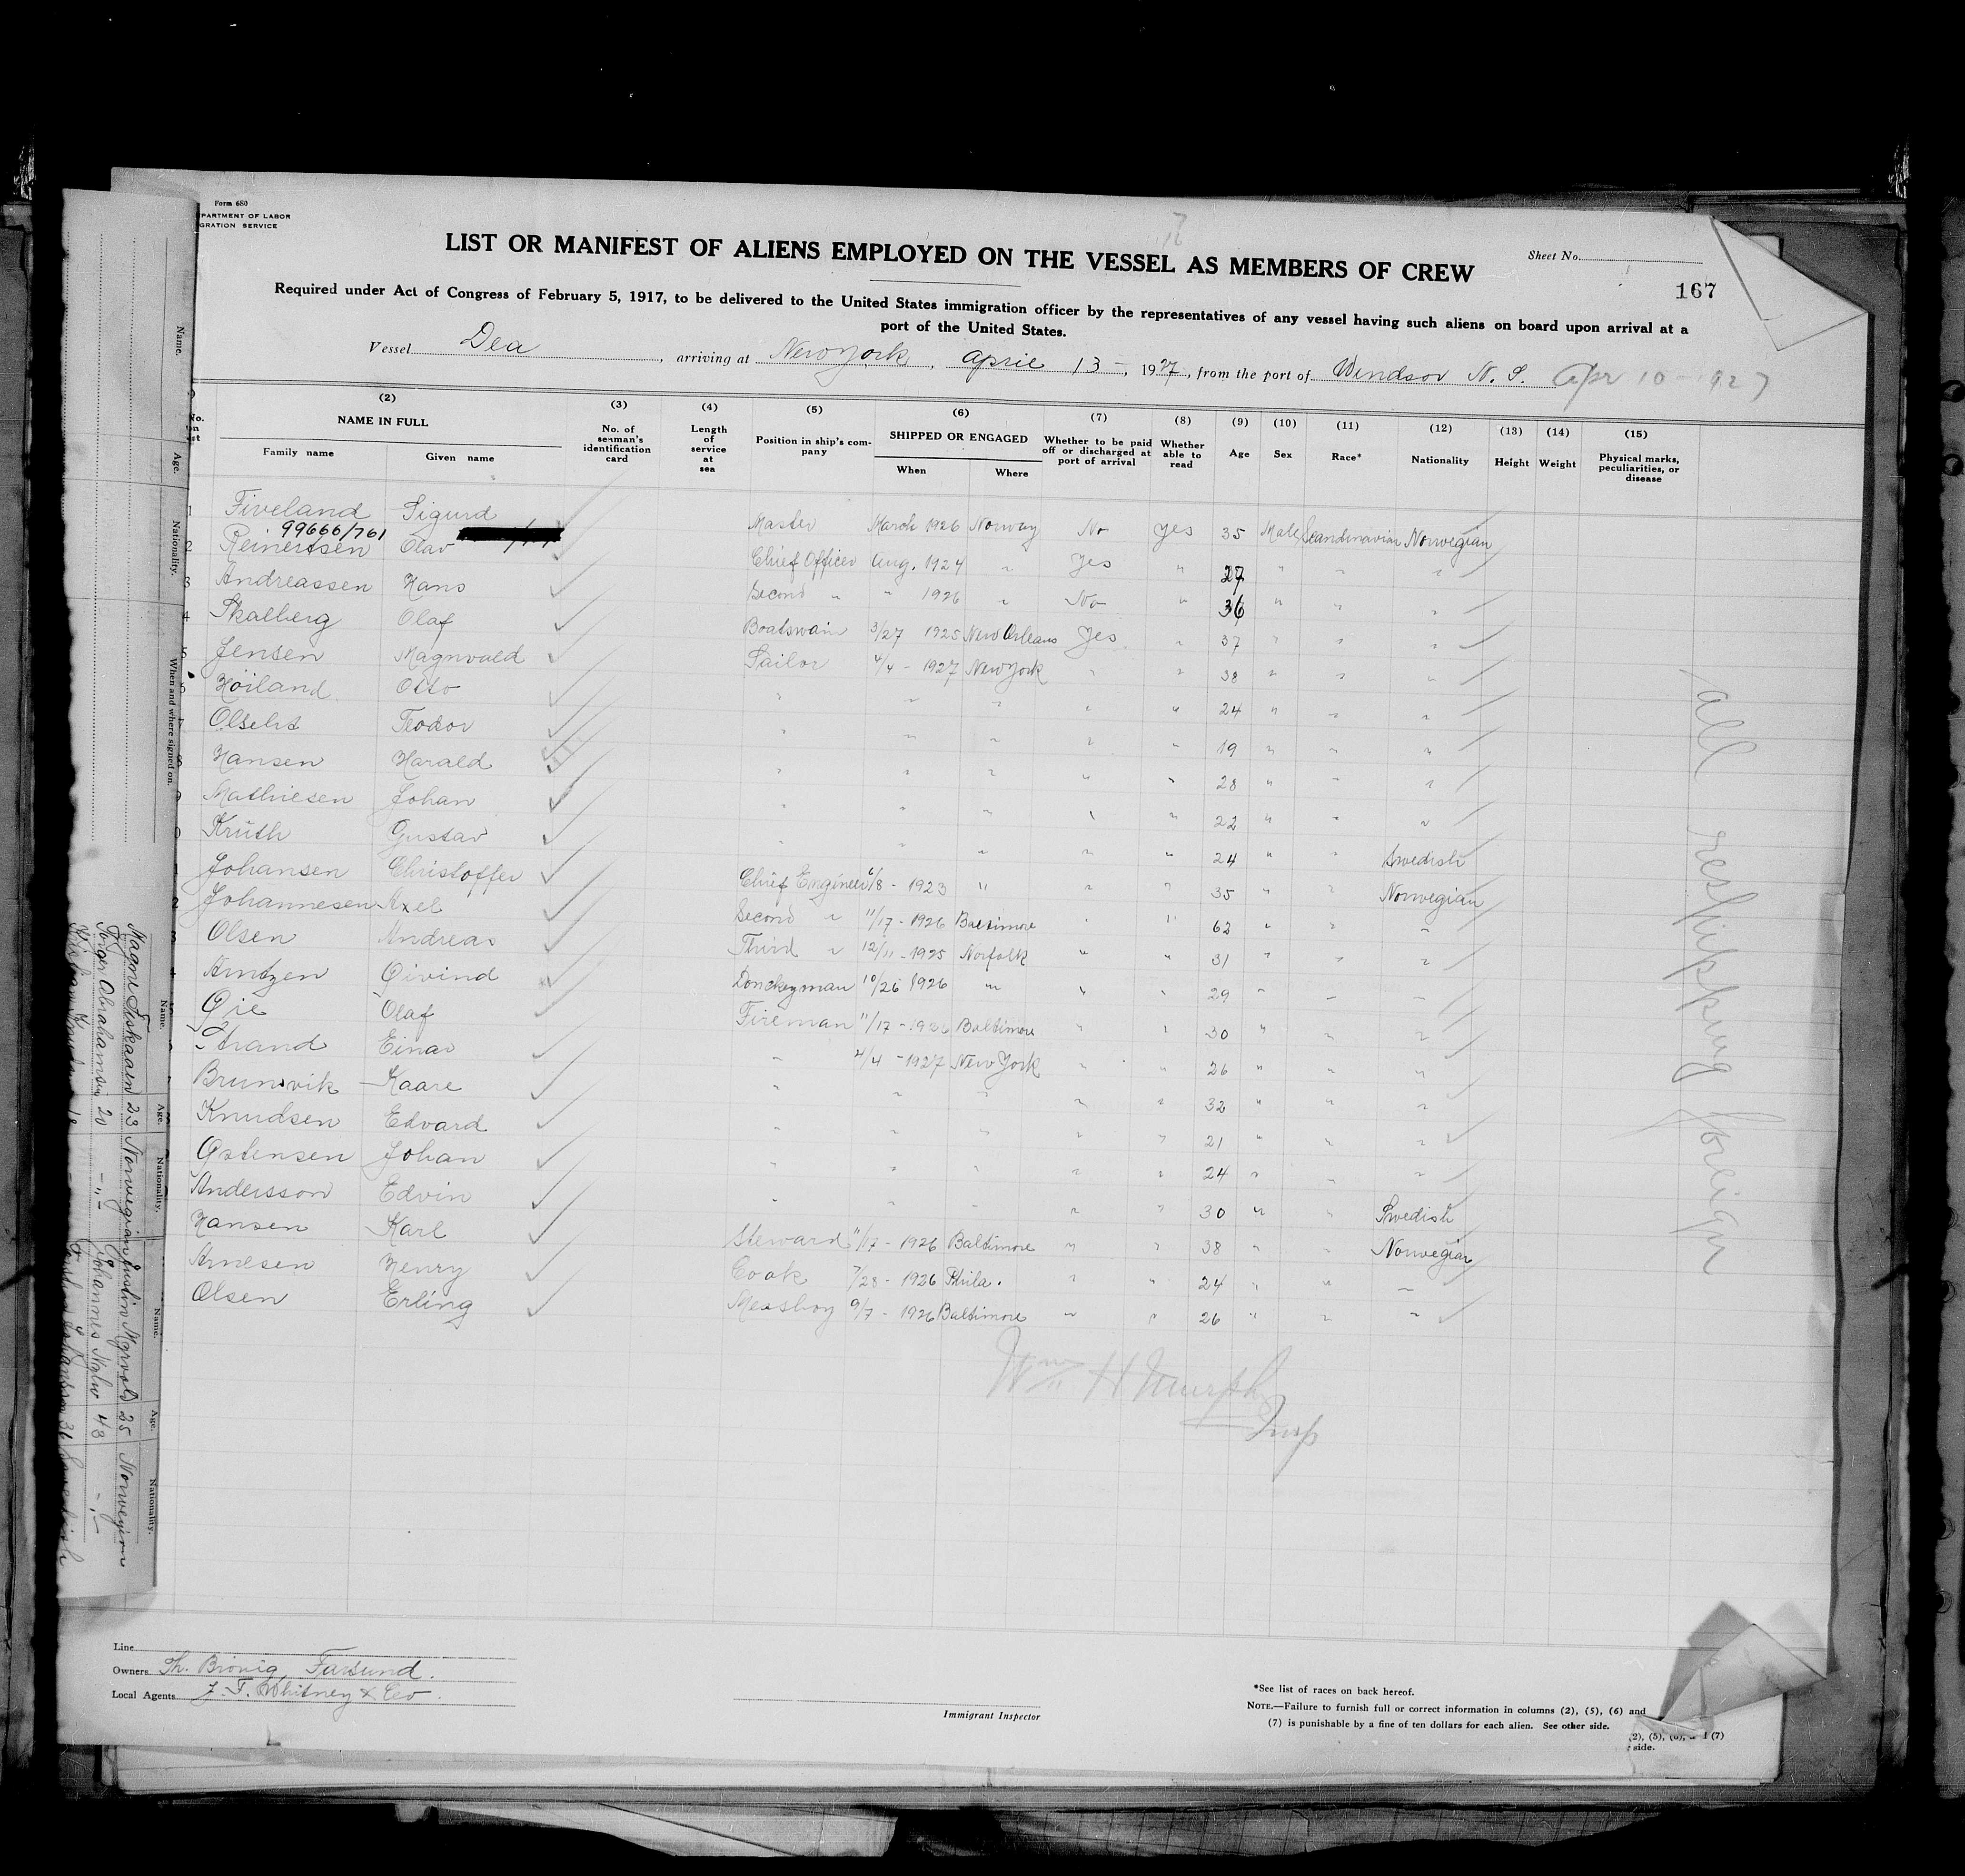 Form 680
PARTMENT OF LABOR
GRATION SERVICE
LIST OR MANIFEST OF ALIENS EMPLOYED ON THE VESSEL AS MEMBERS OF CREW
Sheet No.
167
Required under Act of Congress of February 5, 1917, to be delivered to the United States immigration officer by the representatives of any vessel having such aliens on board upon arrival at a
port of the United States.
Vessel Dea, arriving at New York, April 13 -, 1927, from the port of Windsor N. S. Apr 10 - 1927
(2) (3) (4) (5) (6) (7) (8) (9) (10) (11) (12) (13) (14) (15)
NAME IN FULL
Family name Given name
No. of seaman's identification card
Length of service at sea
Position in ship's company
SHIPPED OR ENGAGED
When Where
Whether to be paid off or discharged at port of arrival
Whether able to read
Age Sex Race* Nationality Height Weight
Physical marks, peculiarities, or disease
1 Fiveland Sigurd Master March 1926 Norway No Yes 35 Male Scandinavian Norwegian
99666/761
2 Reinertsen Olav Chief Officer Aug. 1924 " Yes " 27 " " "
3 Andreassen Hans Second " " 1926 " No " 36 " " "
4 Skalberg Olaf Boatswain 3/27 1925 New Orleans Yes " 37 " " "
5 Jensen Magnvald Sailor 4/4 - 1927 New York " " 38 " " "
Hoiland Otto " " " " " 24 " " "
7 Olsen Teodor " " " " " 19 " " "
8 Hansen Harald " " " " " 28 " " "
9 Mathiesen Johan " " " " " 22 " " "
0 Kruth Gustav " " " " " 24 " " Swedish
1 Johansen Christoffer Chief Engineer 6/8 - 1923 " " " 35 " " Norwegian
2 Johannesen Axel Second " 11/17 - 1926 Baltimore " " 62 " " "
3 Olsen Andreas Third " 12/11 - 1925 Norfolk " " 31 " " "
4 Arntzen Oivind Donckeyman 10/26 1926 " " " 29 " " "
Oie Olaf Fireman 11/17 - 1926 Baltimore " " 30 " " "
Strand Einar " 4/4 - 1927 New York " " 26 " " "
Brunsvik Kaare " " " " " 32 " " "
Knudsen Edvard " " " " " 21 " " "
Ostensen Johan " " " " " 24 " " "
Andersson Edvin " " " " " 30 " " Swedish
Hansen Karl Steward 11/17 - 1926 Baltimore " " 38 " " Norwegian
Arnesen Henry Cook 7/28 - 1926 Phila. " " 24 " " "
Olsen Erling Messboy 9/7 - 1926 Baltimore " " 26 " " "
All reshipping foreign
Wm H Murphy
Insp
Line
Owners Th. Brovig, Farsund.
Local Agents J. F. Whitney & Co.
Immigrant Inspector
*See list of races on back hereof.
NOTE.—Failure to furnish full or correct information in columns (2), (5), (6) and
(7) is punishable by a fine of ten dollars for each alien. See other side.
(7)
side.
Name. Age. Nationality. When and where signed on.
Name. Age. Nationality. Name. Age. Nationality.
23 Norwegian 25 Norwegian
Abrahamsen 20 -"- Johannes 43 -"-